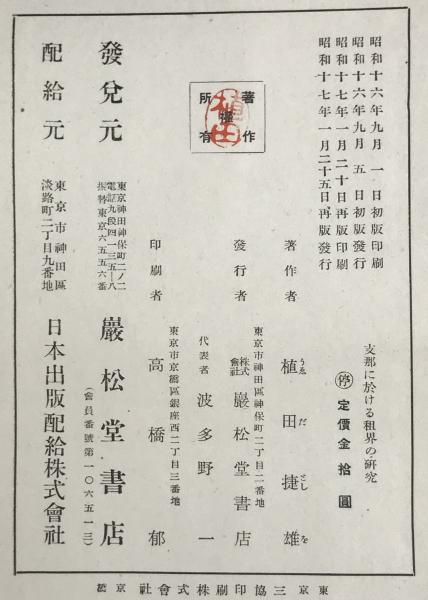 昭和十六年九月一日初版印刷
昭和十六年九月五日初版發行
昭和十七年一月二十日再版印刷
昭和十七年一月二十五日再版發行
支那に於ける租界の研究
停 定價金拾圓
著作權所有
植田
著作者 植田捷雄
うゑだとしを
東京市神田區神保町二丁目二番地
發行者 株式會社 巖松堂書店
代表者 波多野一
東京市京橋區銀座西二丁目三番地
印刷者 高橋郁
發兌元
東京神田神保町二ノ二
電話九段四一三五・八
振替東京六五五六番
巖松堂書店
(會員番號第一〇六五一三)
配給元
東京市神田區
淡路町二丁目九番地
日本出版配給株式會社
東京 三協印刷株式會社 京橋